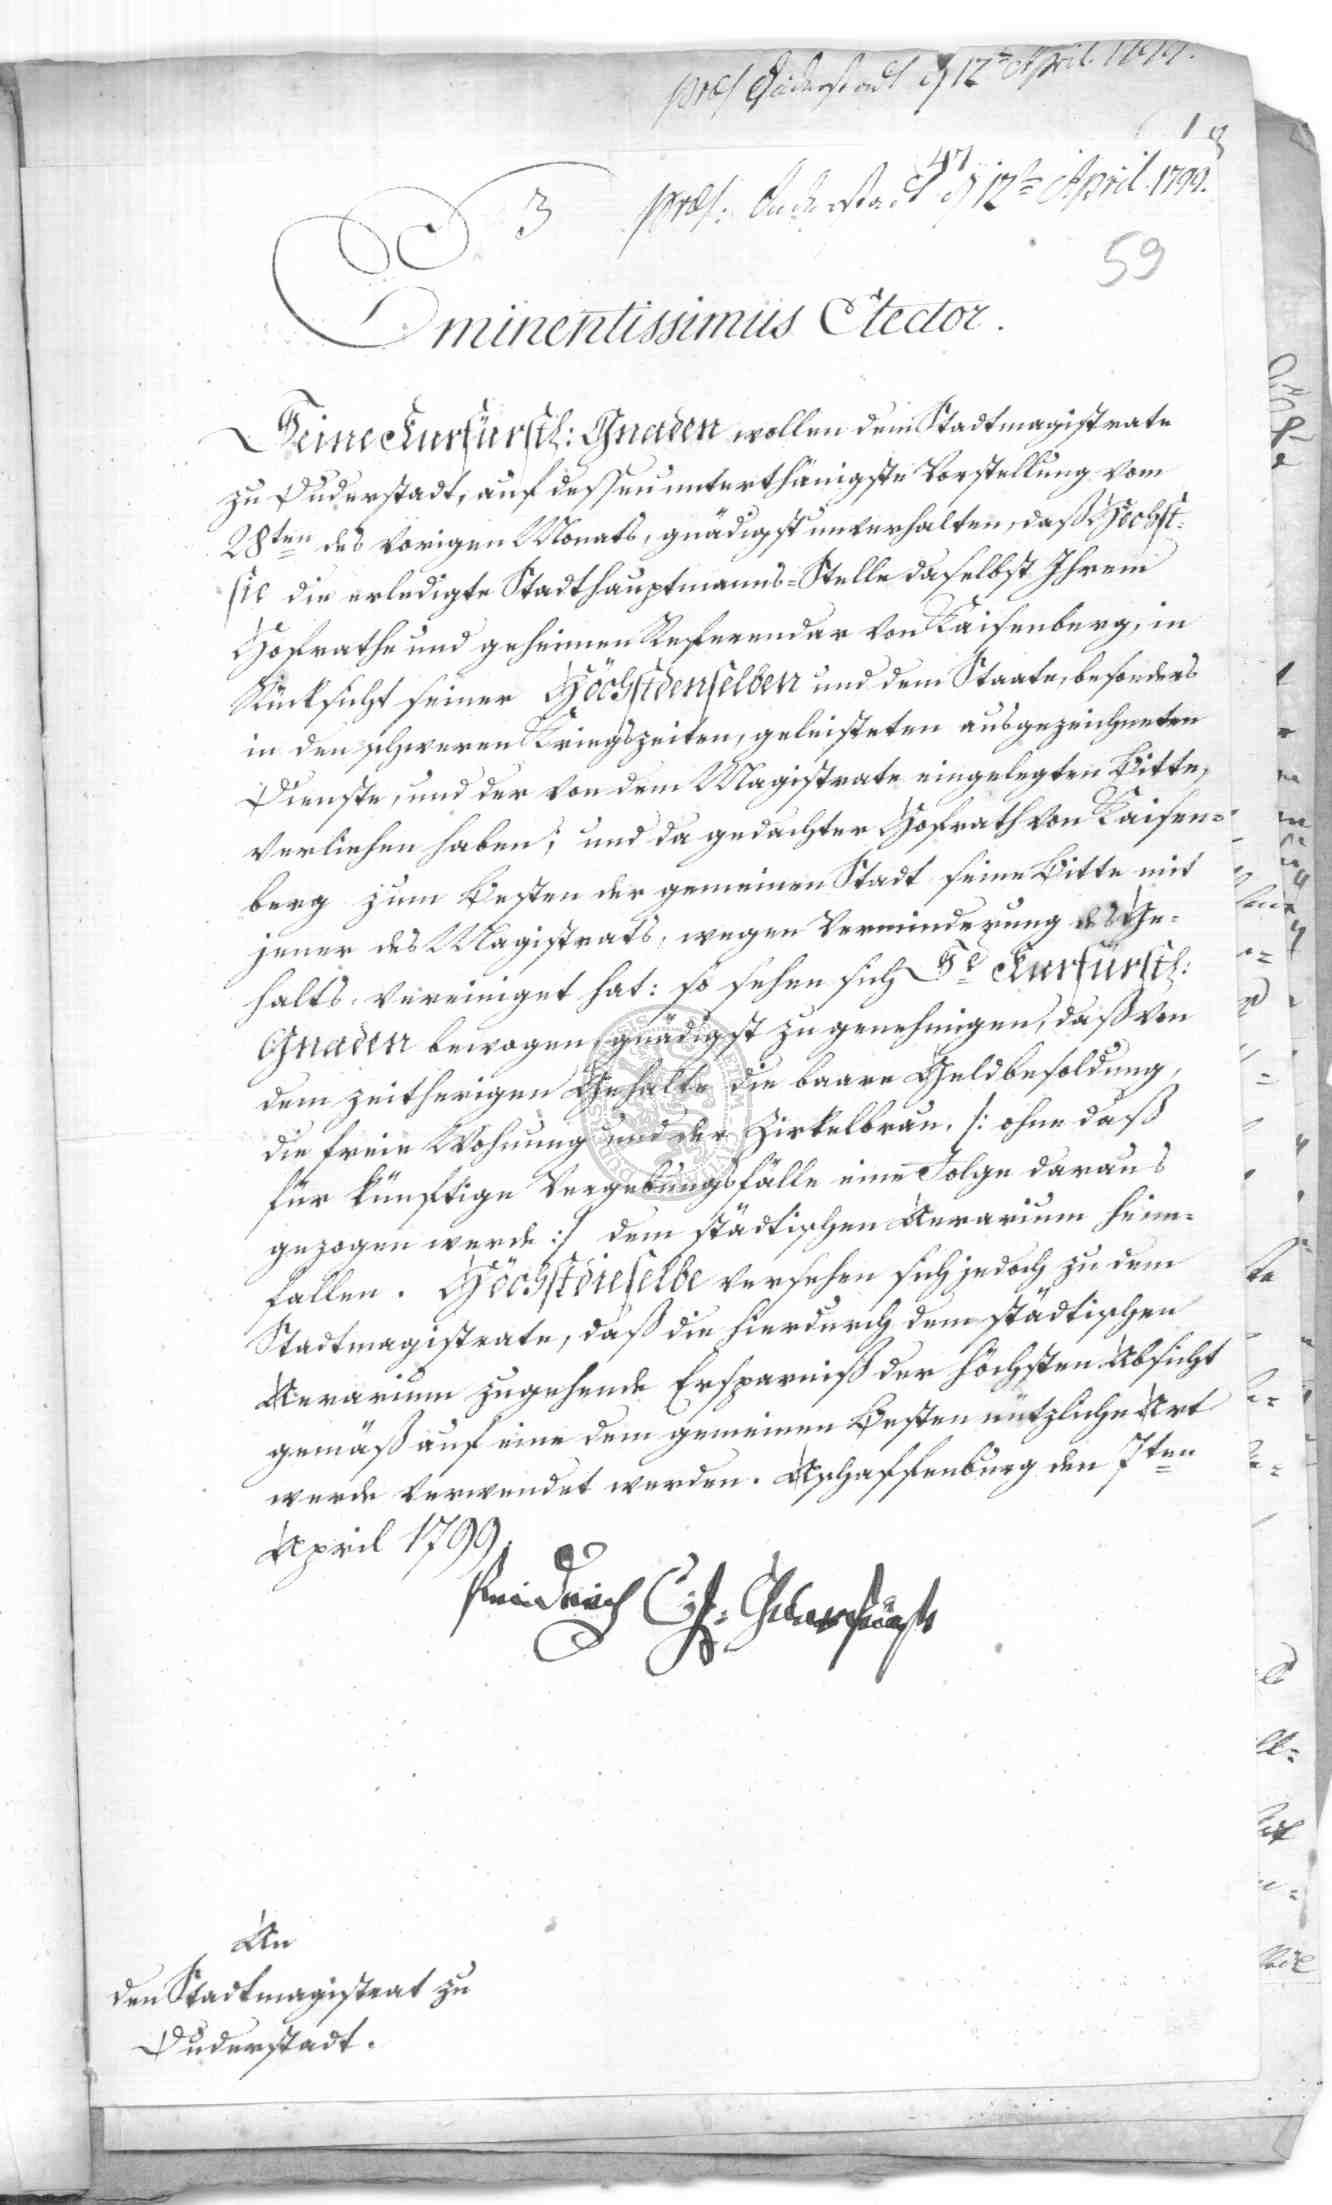 præs. Duderstadt d 12ten April 1799.
18
47
3 præs: Duderstadt d 12t April. 1799.
59
Eminentissimus Elector.
Seine Kurfürstl: Gnaden wollen dem Stadtmagistrate
zu Duderstadt, auf dessen unterthänigste Vorstellung vom
28ten des vorigen Monats, gnädigst unverhalten, daß Höchst-
sie die erledigte Stadthauptmanns-Stelle daselbst Ihrem
Hofrathe und geheimen Referendar von Kaisenberg, in
Rücksicht seiner Höchstdenselben und dem Staate, besonders
in den schweren Kriegszeiten, geleisteten ausgezeichneten
Dienste, und der von dem Magistrate eingelegten Bitte,
verliehen haben; und da gedachter Hofrath von Kaisen-
berg zum Besten der gemeinen Stadt seine Bitte mit
jener des Magistrats, wegen Verminderung des Ge-
halts, vereiniget hat: so sehen sich Se Kurfürstl:
Gnaden bewogen, gnädigst zu genehmigen, daß von
dem zeitherigen Gehalte die baare Geldbesoldung,
die freie Wohnung und der Zirkelbrau, /: ohne daß
für künftige Vergebungsfälle eine Folge daraus
gezogen werde :/ dem städtischen Aerarium heim-
fallen. Höchstdieselbe versehen sich jedoch zu dem
Stadtmagistrate, daß die hierdurch dem städtischen
Aerarium zugehende Ersparniß der höchsten Absicht
gemäß auf eine dem gemeinen Besten nützliche Art
werde verwendet werden. Aschaffenburg den 7ten
April 1799.
Friedrich C. J. Churfürst
An
den Stadtmagistrat zu
Duderstadt.